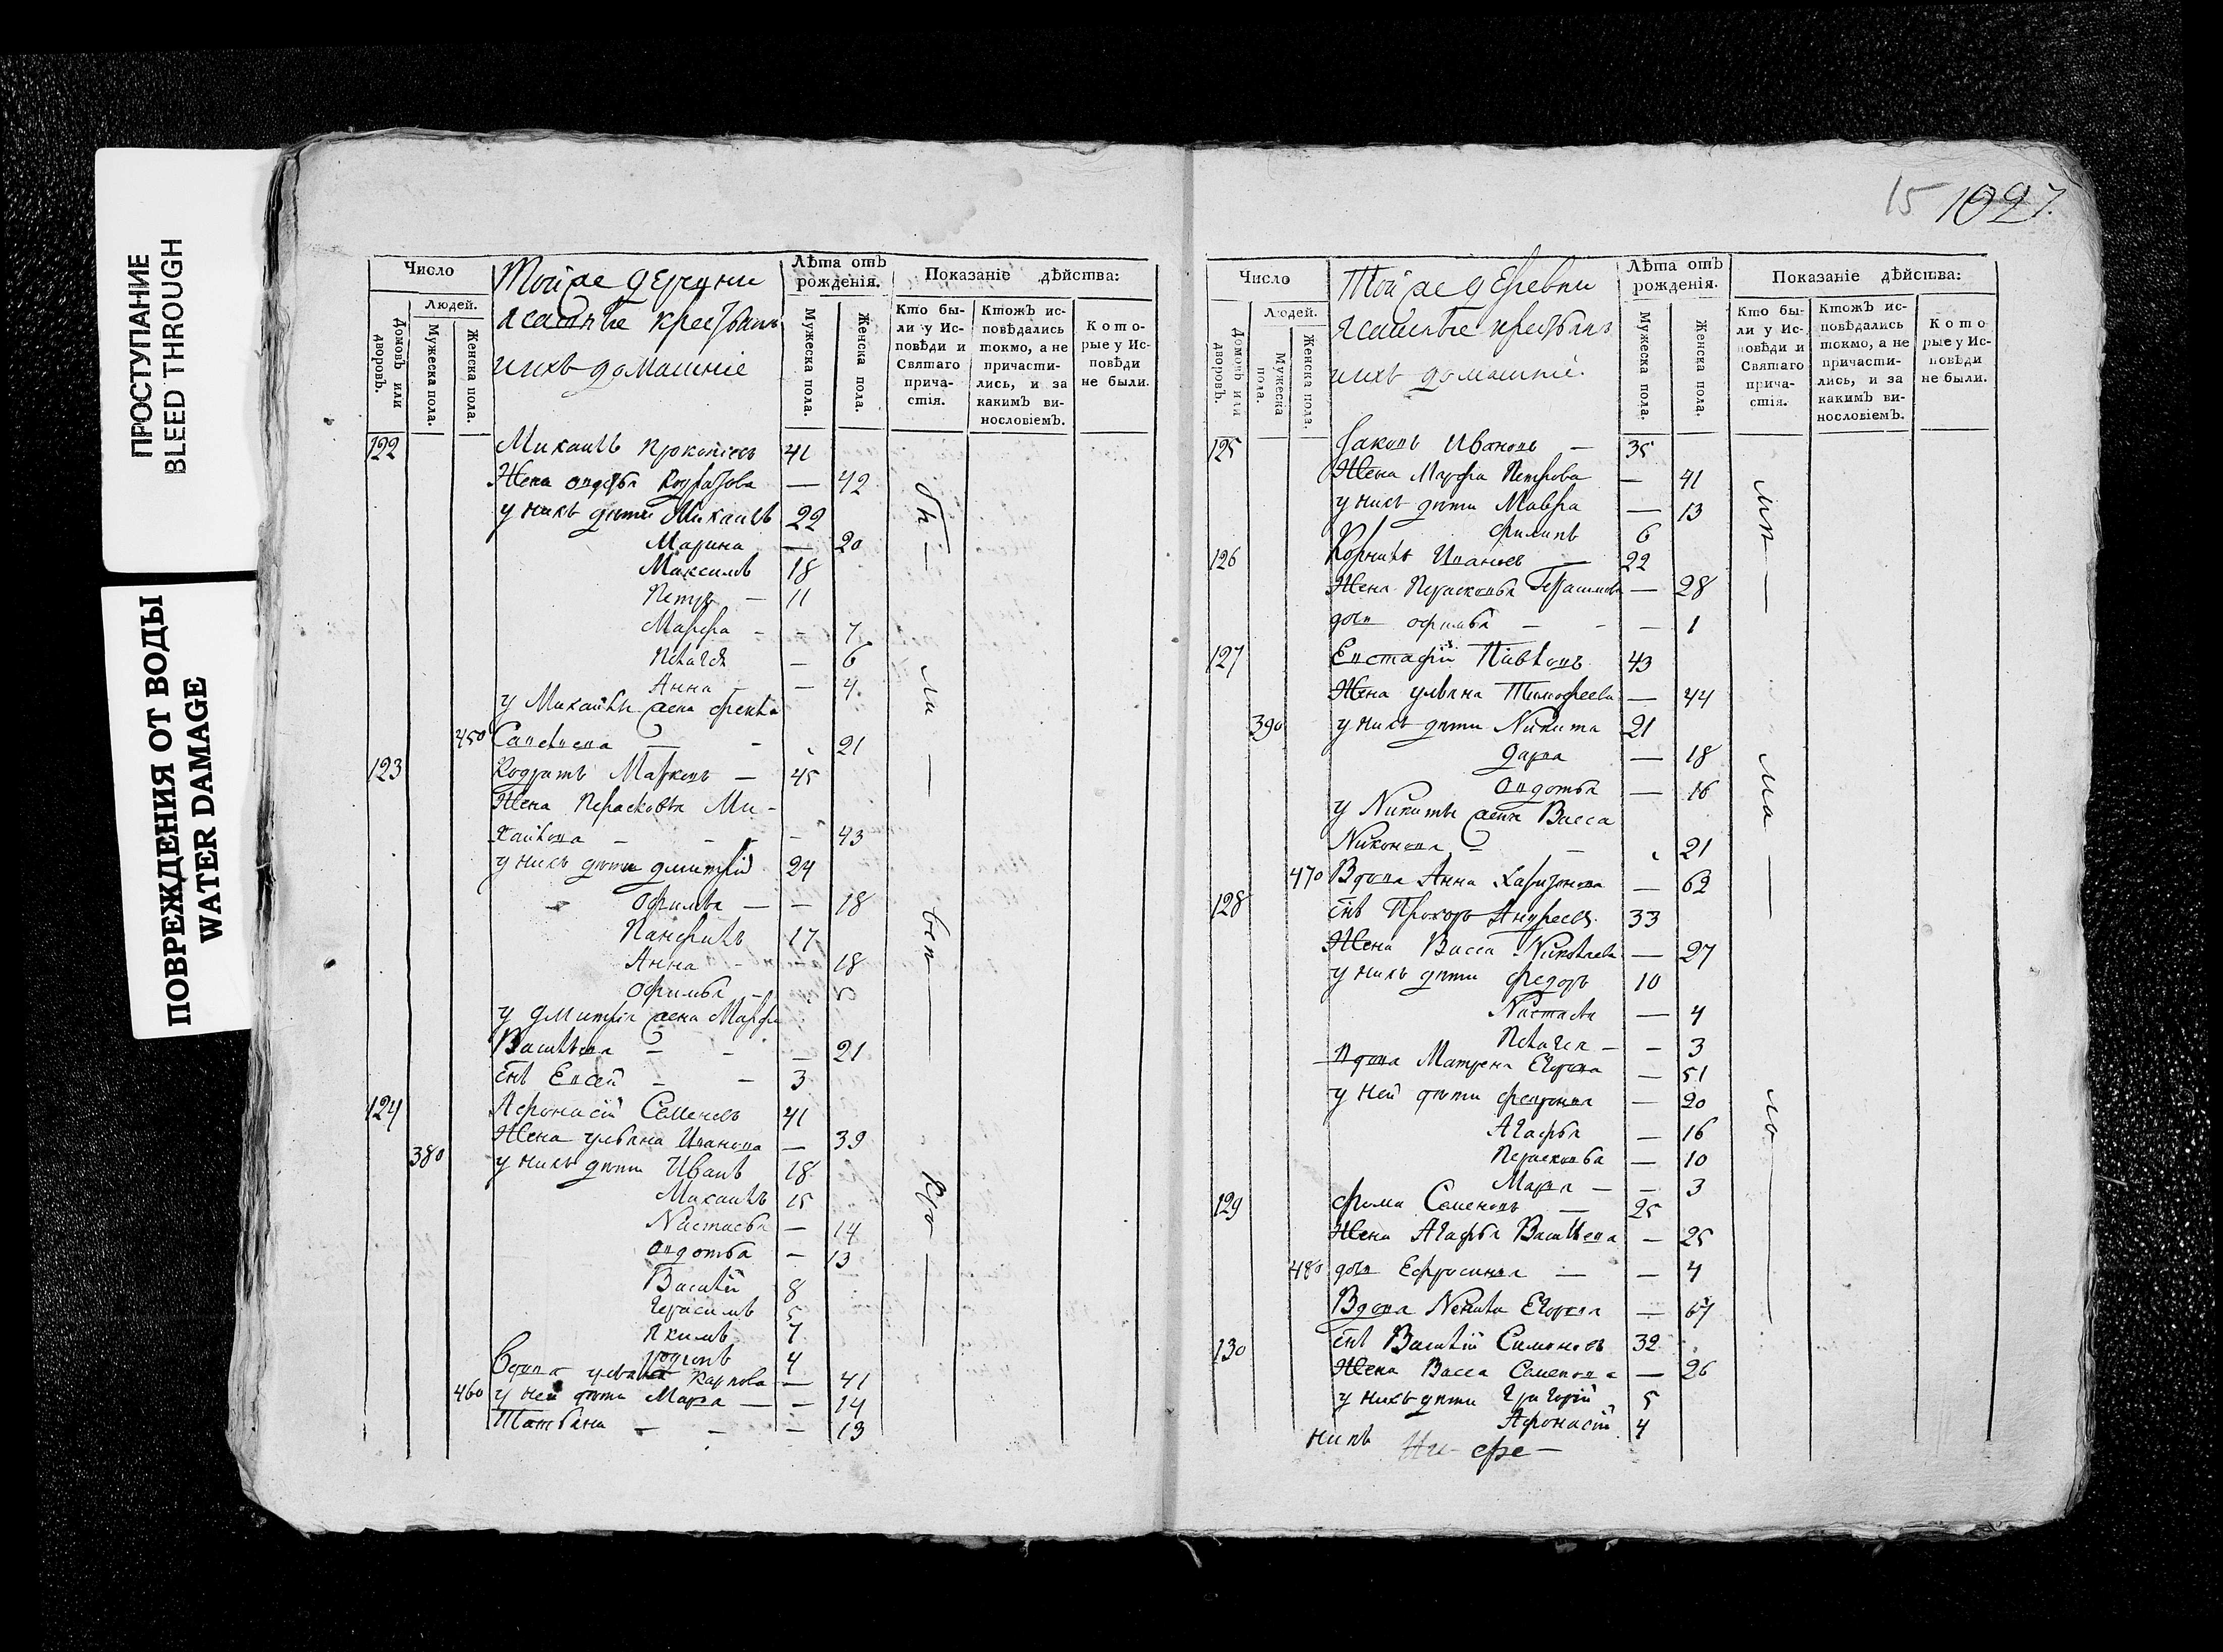 ПРОСТУПАНИЕ
BLEED THROUGH
ПОВРЕЖДЕНИЯ ОТ ВОДЫ
WATER DAMAGE
Число
Людей.
Домовъ или дворовъ.
Мужеска пола.
Женска пола.
Той же деревни
ясашные крестьяне
и ихъ домашніе
Лѣта отъ рожденія.
Мужеска пола.
Женска пола.
Показаніе дѣйства:
Кто были у Исповѣди и Святаго причастія.
Ктожъ исповѣдались токмо, а не причастились, и за какимъ винословіемъ.
Которые у Исповѣди не были.
122 Михаилъ Прокопіевъ 41
Жена 42
у нихъ дѣти Михаилъ 22
Марина — 20
Максимъ 18
Петръ — 11
Марфа - - 7
Пелагея — 6
Анна — 4
у Михаилы жена Фекла
450 Савельева — - 21
123 Кодратъ Марковъ — 45
Жена Перасковья Ми-
хайлова - - - 43
у нихъ дѣти Дмитрій 24
Офимья — — 18
Панфилъ 17
Анна - - 18
Офимья - 5
у Дмитрія жена Марфа
Васильева - - — 21
снъ Евсей - - 3
124 Афонасій Семеновъ 41
Жена Ульяна Иванова — 39
380 у нихъ дѣти Иванъ 18
Михаилъ 15
Настасья — 14
Овдотья — 13
Василій 8
Герасимъ 5
Якимъ 7
4
Вдова Ульяна Карпова — 41
460 у ней дѣти Марья — — 14
Татьяна - - — 13
15 1027.
Число
Людей.
Домовъ или дворовъ.
Мужеска пола.
Женска пола.
Той же деревни
ясашные крестьяне
и ихъ домашніе.
Лѣта отъ рожденія.
Мужеска пола.
Женска пола.
Показаніе дѣйства:
Кто были у Исповѣди и Святаго причастія.
Ктожъ исповѣдались токмо, а не причастились, и за какимъ винословіемъ.
Которые у Исповѣди не были.
125 Іаковъ Ивановъ — 35
Жена Марфа Петрова — 41
у нихъ дѣти Мавра — 13
Филипъ 6
126 Корнилъ Ивановъ — 22
Жена Перасковья Герасимова — 28
дочь Офимья — - — 1
127 Евстафій Павловъ 43
Жена Ульяна Тимофеева — 44
390 у нихъ дѣти Никита 21
Дарья — 18
Овдотья — 16
у Никиты жена Васса
Никонова - — 21
470 Вдова Анна Харитонова — 62
128 снъ Прохоръ Андреевъ 33
Жена Васса Николаева — 27
у нихъ дѣти Федоръ 10
Настасья — 4
Пелагея - — 3
Вдова Матрена Егорова — 51
у ней дѣти Февронья — 20
Агафья — 16
Перасковья — 10
Марья — — 3
129 Фома Семеновъ — 25
Жена Агафья Васильева — 25
480 дочь Ефросинья — — 4
Вдова Ненила Егорова —
130 снъ Василій Симоновъ 32
Жена Васса Семенова — 26
у нихъ дѣти Григорій 5
Афонасій 4